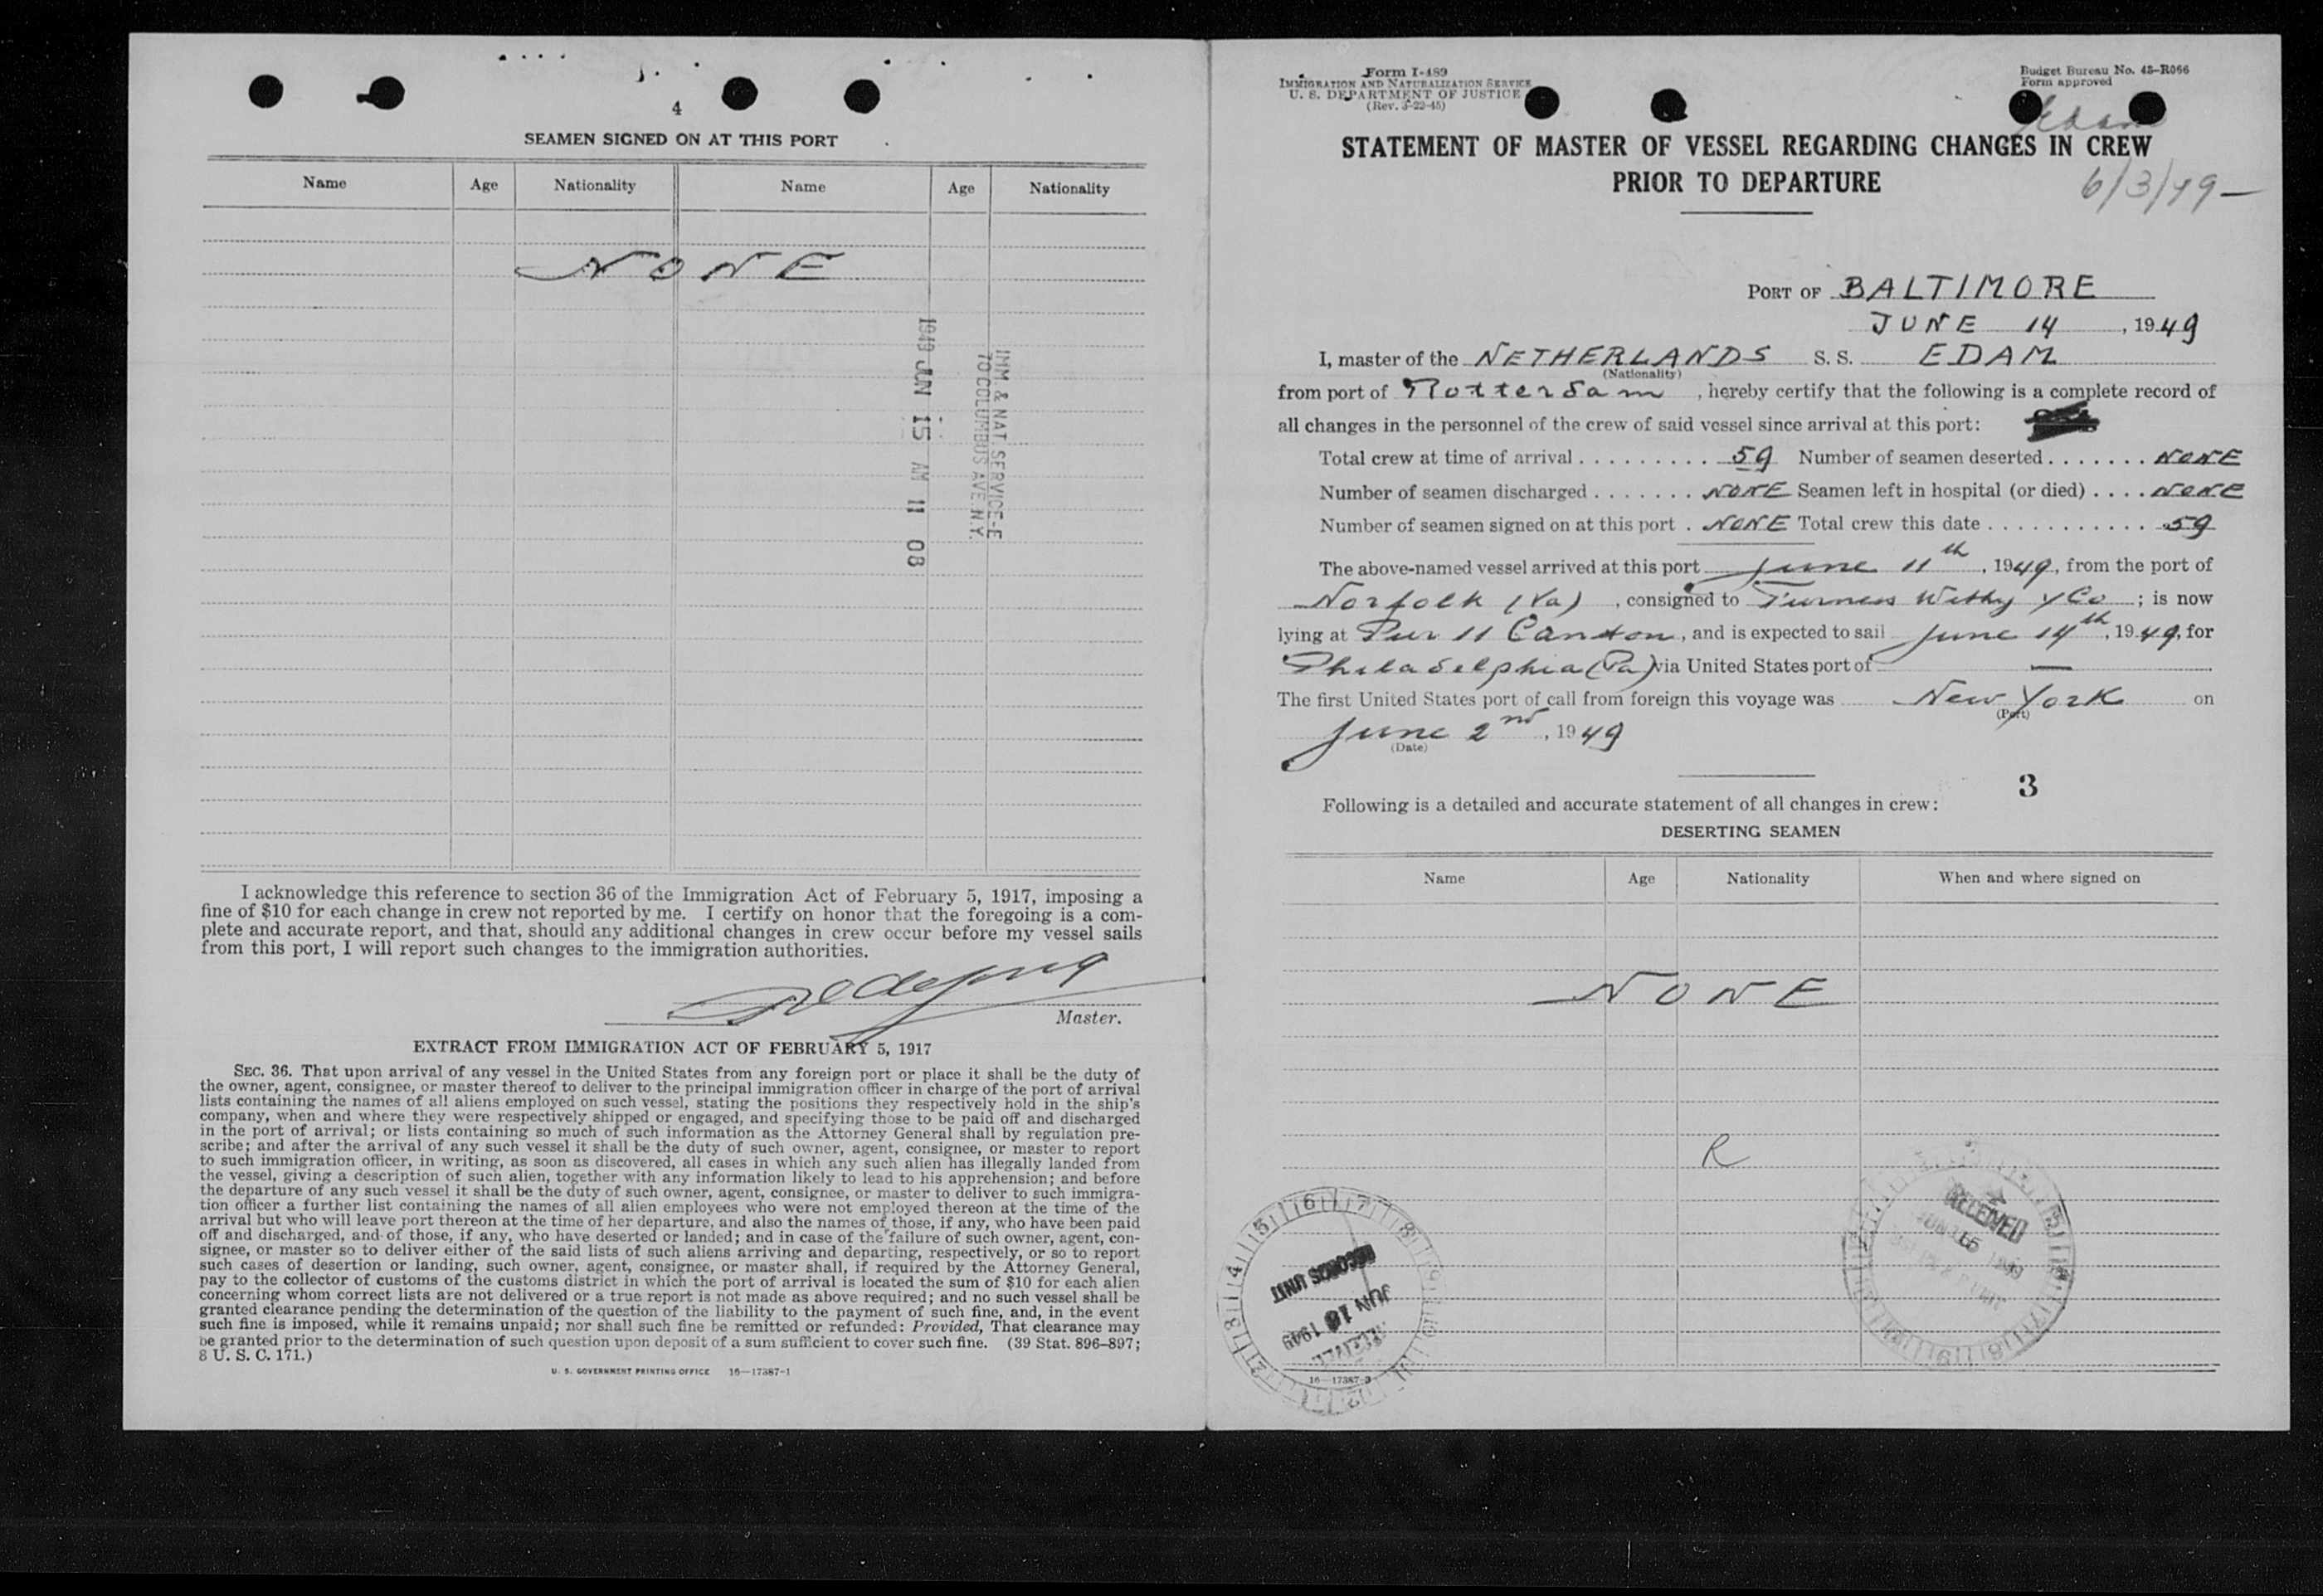 4
SEAMEN SIGNED ON AT THIS PORT
Name Age Nationality Name Age Nationality
NONE
1949 JUN 15 AM 11 08
IMM. & NAT. SERVICE-E
70 COLUMBUS AVE N.Y.
I acknowledge this reference to section 36 of the Immigration Act of February 5, 1917, imposing a
fine of $10 for each change in crew not reported by me. I certify on honor that the foregoing is a com-
plete and accurate report, and that, should any additional changes in crew occur before my vessel sails
from this port, I will report such changes to the immigration authorities.
Master.
EXTRACT FROM IMMIGRATION ACT OF FEBRUARY 5, 1917
SEC. 36. That upon arrival of any vessel in the United States from any foreign port or place it shall be the duty of
the owner, agent, consignee, or master thereof to deliver to the principal immigration officer in charge of the port of arrival
lists containing the names of all aliens employed on such vessel, stating the positions they respectively hold in the ship's
company, when and where they were respectively shipped or engaged, and specifying those to be paid off and discharged
in the port of arrival; or lists containing so much of such information as the Attorney General shall by regulation pre-
scribe; and after the arrival of any such vessel it shall be the duty of such owner, agent, consignee, or master to report
to such immigration officer, in writing, as soon as discovered, all cases in which any such alien has illegally landed from
the vessel, giving a description of such alien, together with any information likely to lead to his apprehension; and before
the departure of any such vessel it shall be the duty of such owner, agent, consignee, or master to deliver to such immigra-
tion officer a further list containing the names of all alien employees who were not employed thereon at the time of the
arrival but who will leave port thereon at the time of her departure, and also the names of those, if any, who have been paid
off and discharged, and of those, if any, who have deserted or landed; and in case of the failure of such owner, agent, con-
signee, or master so to deliver either of the said lists of such aliens arriving and departing, respectively, or so to report
such cases of desertion or landing, such owner, agent, consignee, or master shall, if required by the Attorney General,
pay to the collector of customs of the customs district in which the port of arrival is located the sum of $10 for each alien
concerning whom correct lists are not delivered or a true report is not made as above required; and no such vessel shall be
granted clearance pending the determination of the question of the liability to the payment of such fine, and, in the event
such fine is imposed, while it remains unpaid; nor shall such fine be remitted or refunded: Provided, That clearance may
be granted prior to the determination of such question upon deposit of a sum sufficient to cover such fine. (39 Stat. 896–897;
8 U. S. C. 171.)
U. S. GOVERNMENT PRINTING OFFICE 16—17387-1
Form I-489
IMMIGRATION AND NATURALIZATION SERVICE
U. S. DEPARTMENT OF JUSTICE
(Rev. 3-22-45)
Budget Bureau No. 43–R066
Form approved
Edam
STATEMENT OF MASTER OF VESSEL REGARDING CHANGES IN CREW
PRIOR TO DEPARTURE
6/3/49—
PORT OF BALTIMORE
JUNE 14, 1949
I, master of the NETHERLANDS S. S. EDAM
(Nationality)
from port of Rotterdam, hereby certify that the following is a complete record of
all changes in the personnel of the crew of said vessel since arrival at this port:
Total crew at time of arrival . . . . . . . . . . 59 Number of seamen deserted . . . . . . . NONE
Number of seamen discharged . . . . . . . NONE Seamen left in hospital (or died) . . . . NONE
Number of seamen signed on at this port . NONE Total crew this date . . . . . . . . . . . . 59
The above-named vessel arrived at this port June 11th, 1949, from the port of
Norfolk (Va), consigned to Furness Withy & Co; is now
lying at Pier 11 Canton, and is expected to sail June 14th, 1949, for
Philadelphia (Pa) via United States port of —
The first United States port of call from foreign this voyage was New York on
(Port)
June 2nd, 1949
(Date)
3
Following is a detailed and accurate statement of all changes in crew:
DESERTING SEAMEN
Name Age Nationality When and where signed on
NONE
R
RECEIVED
JUN 15 1949
RECORDS UNIT
JUN 16 1949
RECEIVED
16—17387-3